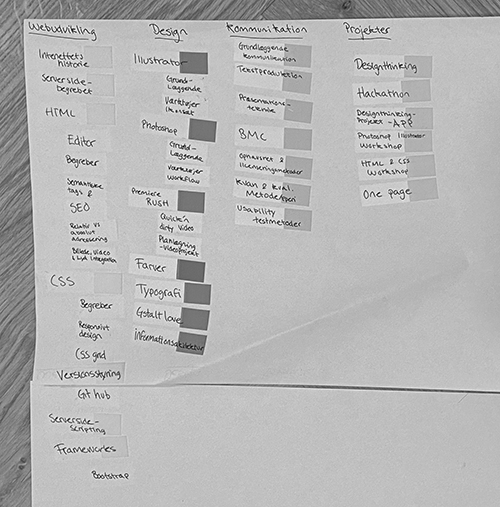 Webudvikling
Internettets
historie
Serverside-
begrebet
HTML
Editer
Begreber
Semantiske
tags &
SEO
Relativ vs
absolut
Adressering
Billede, Video
& Lyd Integration
CSS
Begreber
Responsivt
design
CSS grid
Versionsstyring
Github
Serverside-
scripting
Frameworks
Bootstrap
Design
Illustrator
Grund-
læggende
Værktøjer
Photoshop
Grund-
læggende
Værktøjer
workflow
Premiere
RUSH
Quick'n
dirty video
Planlægning
-videoprojekt
Farver
Typografi
Gstalt love
informationsarkitektur
Kommunikation
Grundlæggende
kommunikation
Tekstproduktion
Præsentations-
teknik
BMC
Ophavsret &
licenseringsmetoder
Kvan & Kval.
Metode
Usability
testmetoder
Projekter
Designthinking
Hackathon
Designthinking-
Projekt - APP
Photoshop Illustrator
Workshop
HTML & CSS
Workshop
One page